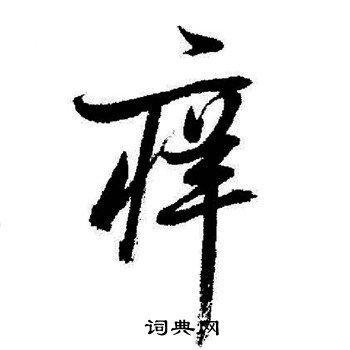 痒
词典网